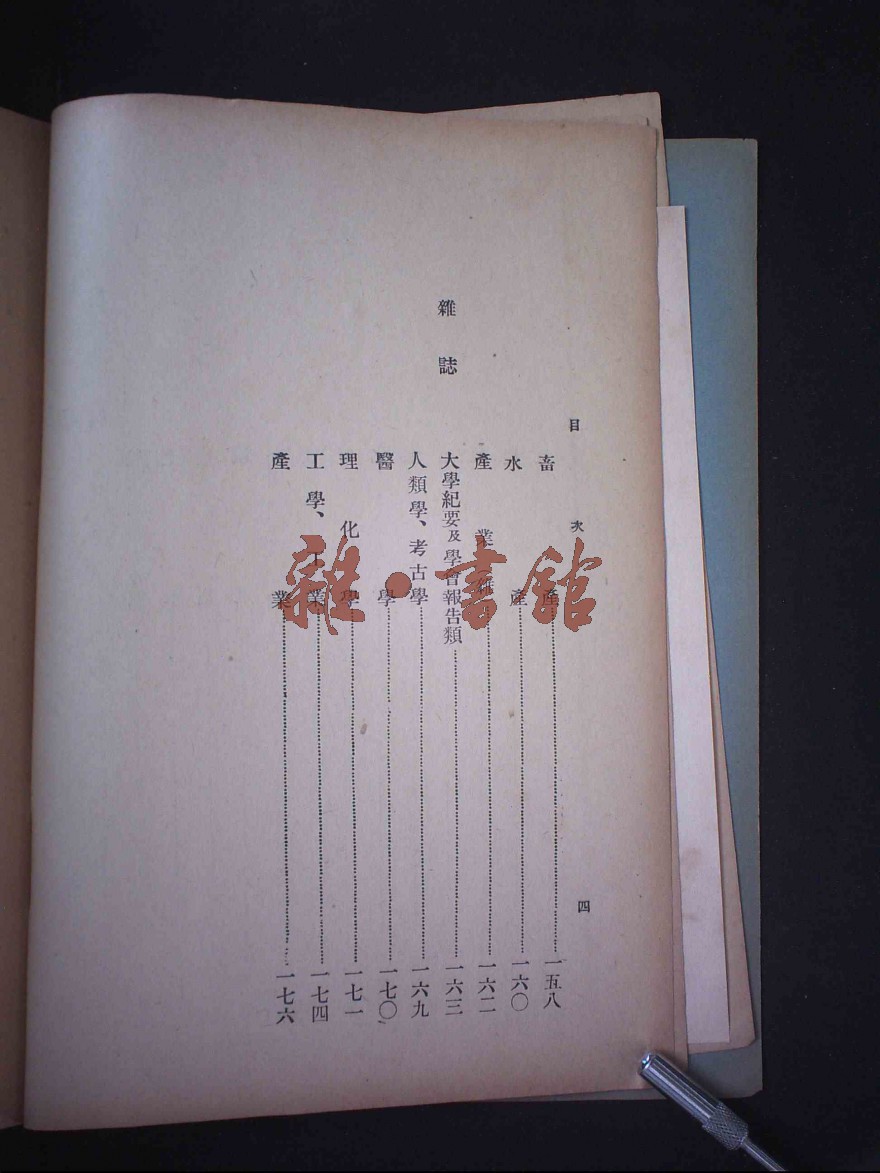 目次 四
畜產 一五八
水產 一六〇
產業雜 一六二
雜誌
大學紀要及學會報告類 一六三
人類學、考古學 一六九
醫學 一七〇
理化學 一七一
工學、工業 一七四
產業 一七六
雜·書館